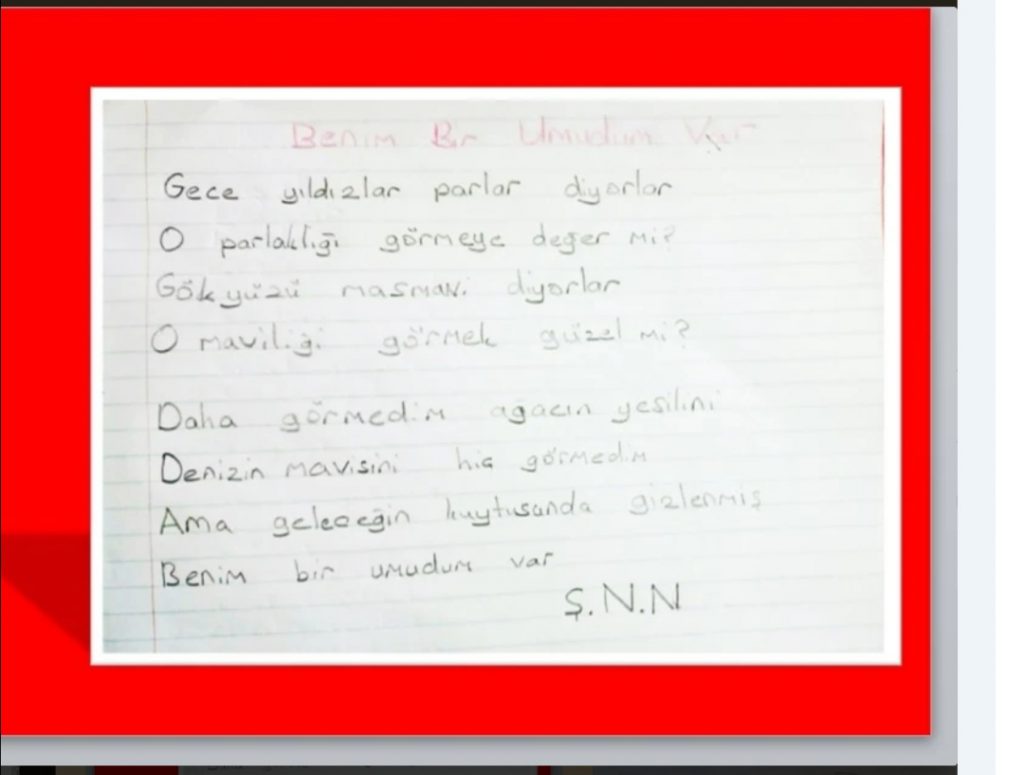 Benim Bir Umudum Var
Gece yıldızlar parlar diyorlar
O parlaklığı görmeye değer mi?
Gökyüzü masmavi diyorlar
O maviliği görmek güzel mi?
Daha görmedim ağacın yeşilini
Denizin mavisini hiç görmedim
Ama geleceğin kuytusunda gizlenmiş
Benim bir umudum var
Ş.N.N